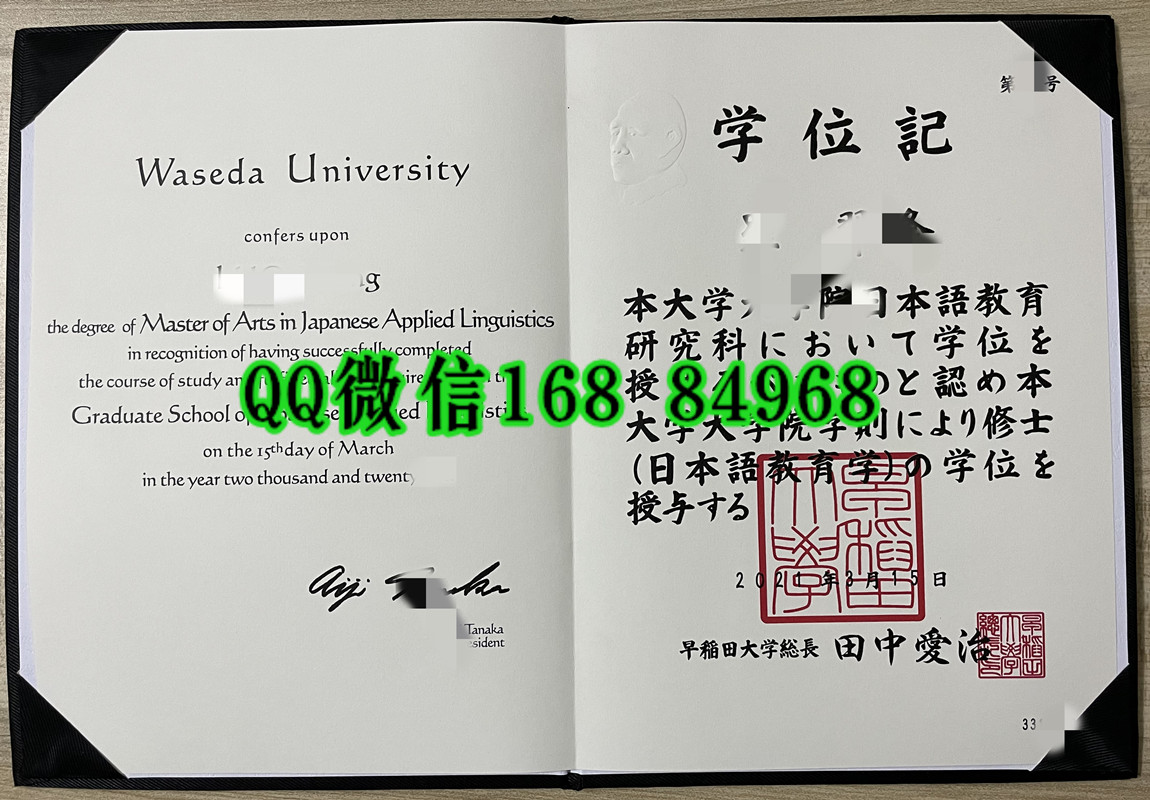 Waseda University
confers upon
g
the degree of Master of Arts in Japanese Applied Linguistics
in recognition of having successfully completed
the course of study
Graduate School
on the 15th day of March
in the year two thousand and twenty
Tanaka
sident
QQ微信168 84968
第 号
学位記
本大学 院日本語教育
研究科において学位を
授 のと認め本
大学大学院学則により修士
(日本語教育学)の学位を
授与する
2021年3月15日
早稲田大学総長 田中愛治
33